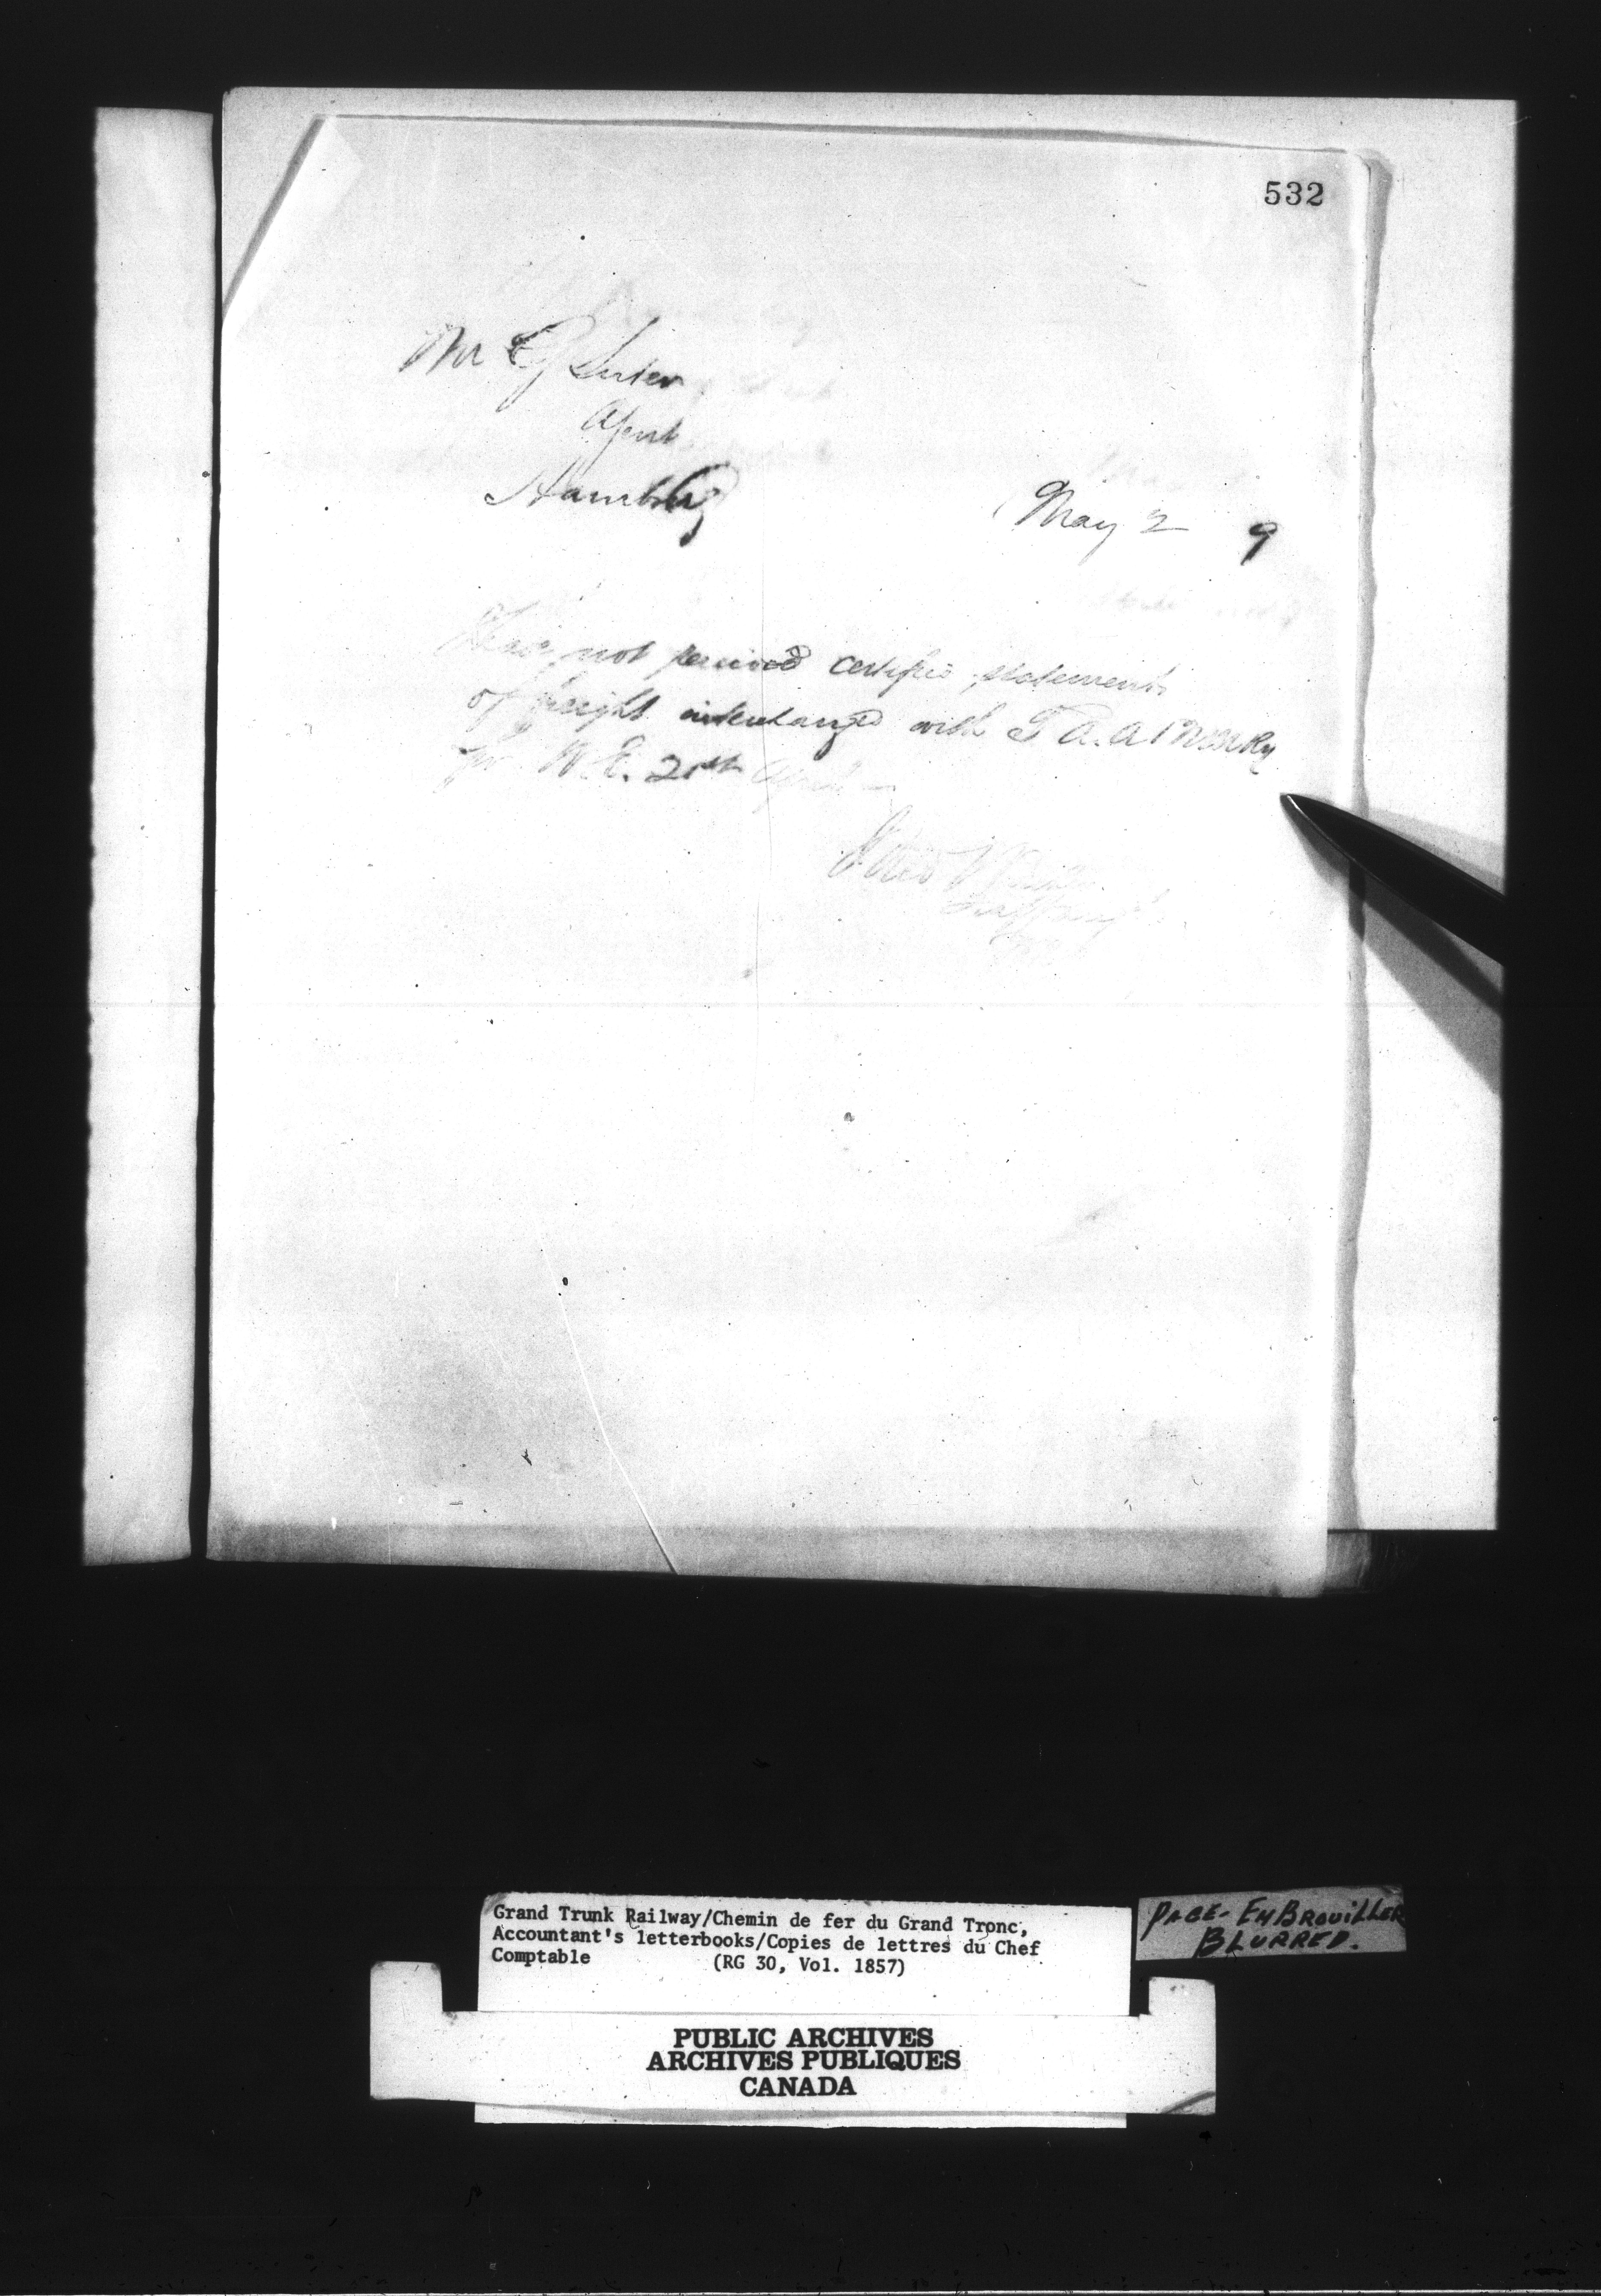 532
Mr E J
Agent
Hamburg
May 2 9
Have not received certified statements
of freight interchanged with T A. A & N M Ry
for W. E. 21st April
Grand Trunk Railway/Chemin de fer du Grand Tronc,
Accountant's letterbooks/Copies de lettres du Chef
Comptable (RG 30, Vol. 1857)
PAGE- EMBROUILLER
BLURRED.
PUBLIC ARCHIVES
ARCHIVES PUBLIQUES
CANADA